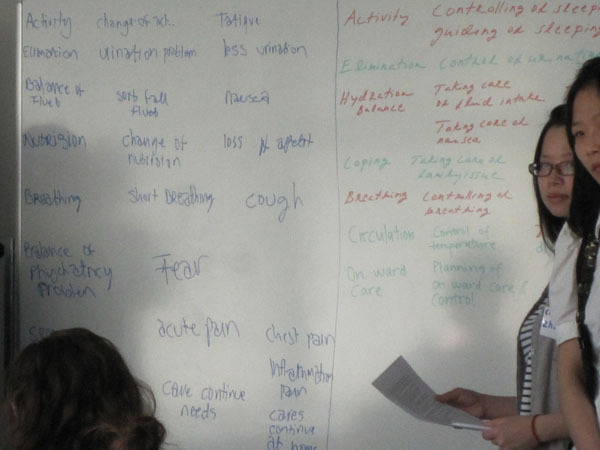 Activity change of act.. Fatigue
Elimination urination problem loss urination
Balance of
Flueb
nausea
Nutrision change of
nutrision
loss of appetit
Breathing short Breathing cough
Balance of
Phychiatricy
Problem
Fear
acute pain chest pain
pain
Care continue
needs
cares
continue
at home
Activity Controlling of sleeping
guiding of sleeping
Elimination Control of urination
Hydration
Balance
Taking care
of fluid intake
Taking care of
nausea
Coping Taking care of
family issue
Breathing Controlling of
breathing
Circulation Control of
temperature
On ward
Care
Planning of
on ward care &
Control